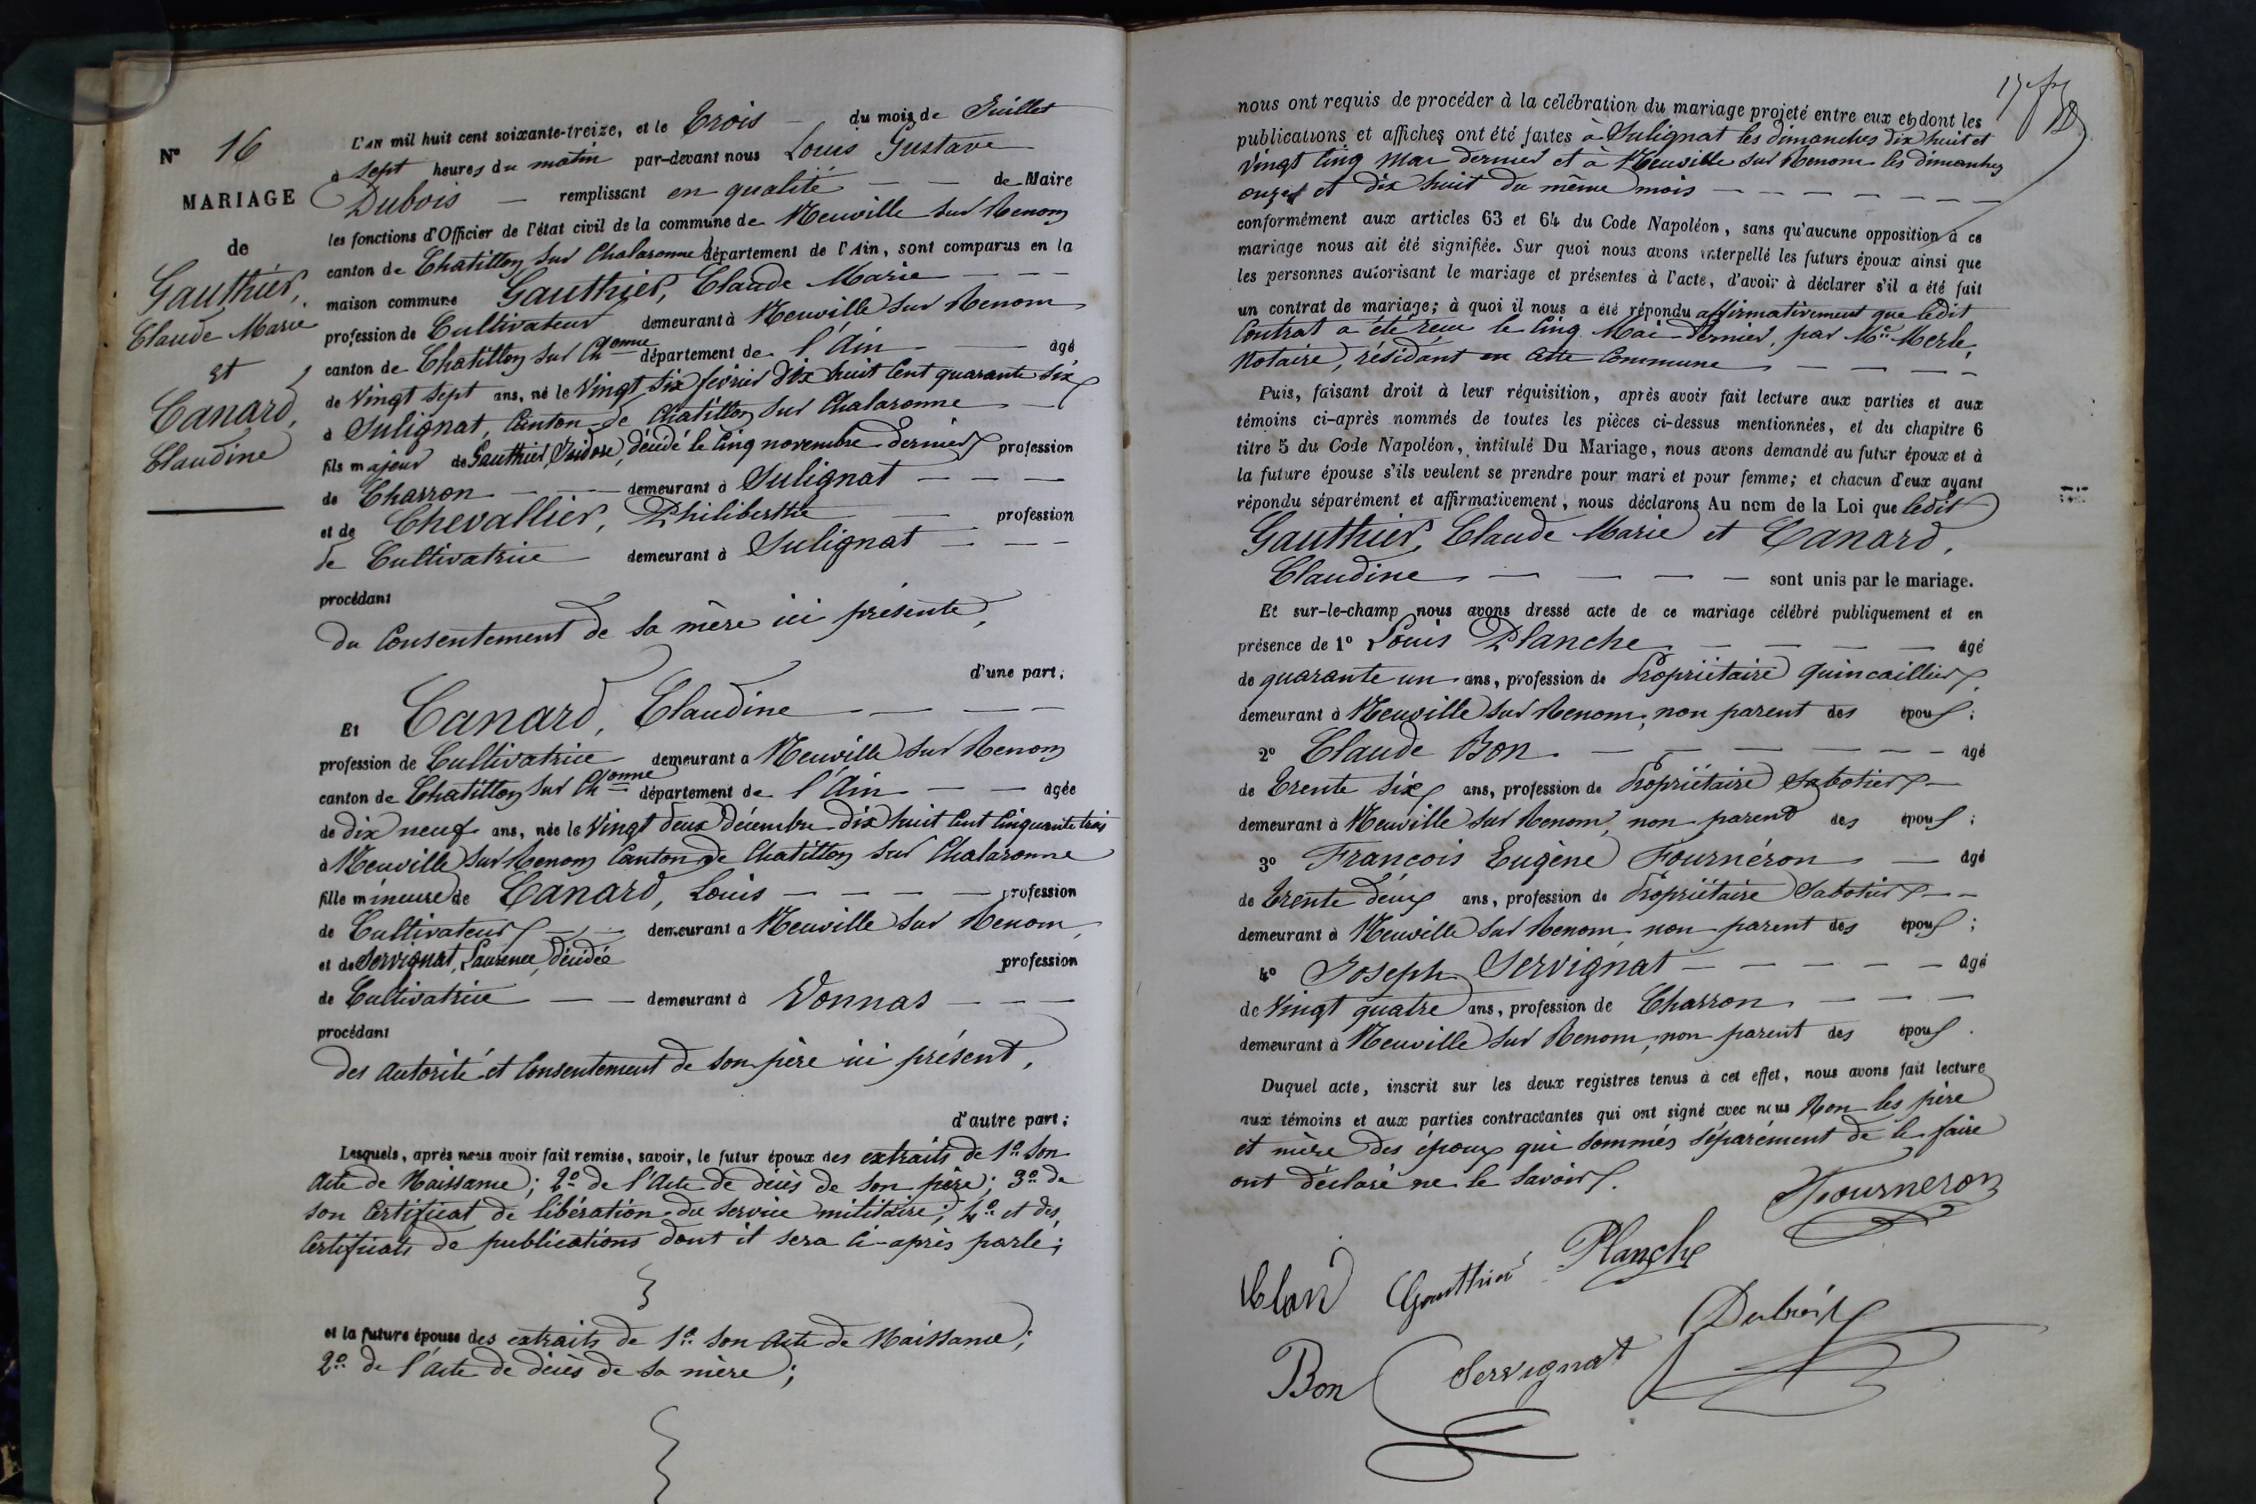 N° 16
MARIAGE
de
Gauthier,
Claude Marie
et
Canard,
Claudine
L'AN mil huit cent soixante-treize, et le Trois du mois de Juillet
à sept heures du matin par-devant nous Louis Gustave
Dubois remplissant en qualité de Maire
les fonctions d'Officier de l'état civil de la commune de Neuville sur Renom
canton de Chatillon sur Chalaronne département de l'Ain, sont comparus en la
maison commune Gauthier, Claude Marie
profession de Cultivateur demeurant à Neuville sur Renom
canton de Chatillon sur Chonne département de l'Ain âgé
de Vingt sept ans, né le Vingt six février dix huit cent quarante six
à Sulignat, Canton de Chatillon sur Chalaronne
fils majeur de Gauthier, Isidore, décédé le cinq novembre dernier profession
de Charron demeurant à Sulignat
et de Chevallier, Philiberthe profession
de Cultivatrice demeurant à Sulignat
procédant
du Consentement de sa mère ici présente,
d'une part;
Et Canard, Claudine
profession de Cultivatrice demeurant à Neuville sur Renom
canton de Chatillon sur Chonne département de l'Ain âgée
de dix neuf ans, née le Vingt deux Décembre dix huit cent cinquante trois
à Neuville sur Renom Canton de Chatillon sur Chalaronne
fille mineure de Canard, Louis profession
de Cultivateur demeurant à Neuville sur Renom,
et de Servignat, Laurence, décédée profession
de Cultivatrice demeurant à Vonnas
procédant
des autorité et Consentement de son père ici présent,
d'autre part;
Lesquels, après nous avoir fait remise, savoir, le futur époux des extraits de 1° son
Acte de Naissance; 2° de l'Acte de décès de son père; 3° de
son Certificat de libération du service militaire; 4° et des
Certificats de publications dont il sera ci-après parlé;
et la future épouse des extraits de 1° son Acte de Naissance;
2° de l'Acte de décès de sa mère;
nous ont requis de procéder à la célébration du mariage projeté entre eux et dont les
publications et affiches ont été faites à Sulignat les dimanches dix huit et
Vingt cinq Mai dernier et à Neuville sur Renom les dimanches
onze et dix huit du même mois
conformément aux articles 63 et 64 du Code Napoléon, sans qu'aucune opposition à ce
mariage nous ait été signifiée. Sur quoi nous avons interpellé les futurs époux ainsi que
les personnes autorisant le mariage et présentes à l'acte, d'avoir à déclarer s'il a été fait
un contrat de mariage; à quoi il nous a été répondu affirmativement que ledit
Contrat a été reçu le Cinq Mai dernier, par Me Merle,
Notaire, résidant en cette Commune
Puis, faisant droit à leur réquisition, après avoir fait lecture aux parties et aux
témoins ci-après nommés de toutes les pièces ci-dessus mentionnées, et du chapitre 6
titre 5 du Code Napoléon, intitulé Du Mariage, nous avons demandé au futur époux et à
la future épouse s'ils veulent se prendre pour mari et pour femme; et chacun d'eux ayant
répondu séparément et affirmativement, nous déclarons Au nom de la Loi que ledit
Gauthier, Claude Marie et Canard,
Claudine sont unis par le mariage.
Et sur-le-champ nous avons dressé acte de ce mariage célébré publiquement et en
présence de 1° Louis Planche âgé
de quarante un ans, profession de Propriétaire quincaillier
demeurant à Neuville sur Renom, non parent des époux;
2° Claude Bon âgé
de Trente six ans, profession de Propriétaire Sabotier
demeurant à Neuville sur Renom, non parent des époux;
3° François Eugène Fournéron âgé
de Trente deux ans, profession de Propriétaire Sabotier
demeurant à Neuville sur Renom non parent des époux;
4° Joseph Servignat âgé
de Vingt quatre ans, profession de Charron
demeurant à Neuville sur Renom, non parent des époux.
Duquel acte, inscrit sur les deux registres tenus à cet effet, nous avons fait lecture
aux témoins et aux parties contractantes qui ont signé avec nous Non les père
et mère des époux qui sommés séparément de le faire
ont déclaré ne le savoir.
Fourneron
Gauthier Planche
Dubois
Bon Servignat